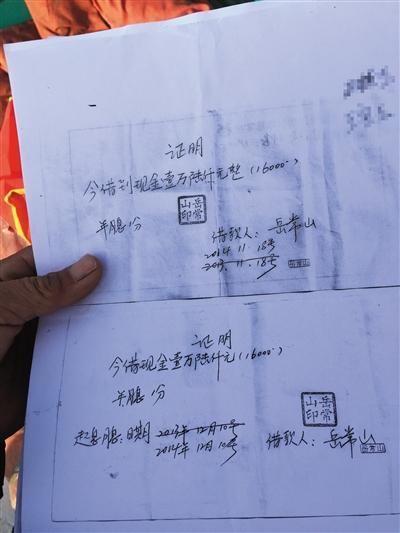 证明
今借到现金壹万陆仟元整(16000-)
年息1分
岳常
山印
借款人:岳常山
2014.11.18号
2013.11.18号
岳常山
证明
今借现金壹万陆仟元(16000-)
年息1分
岳常
山印
起息息:日期 2013年12月10号
2014年12月10号
借款人:岳常山
岳常山